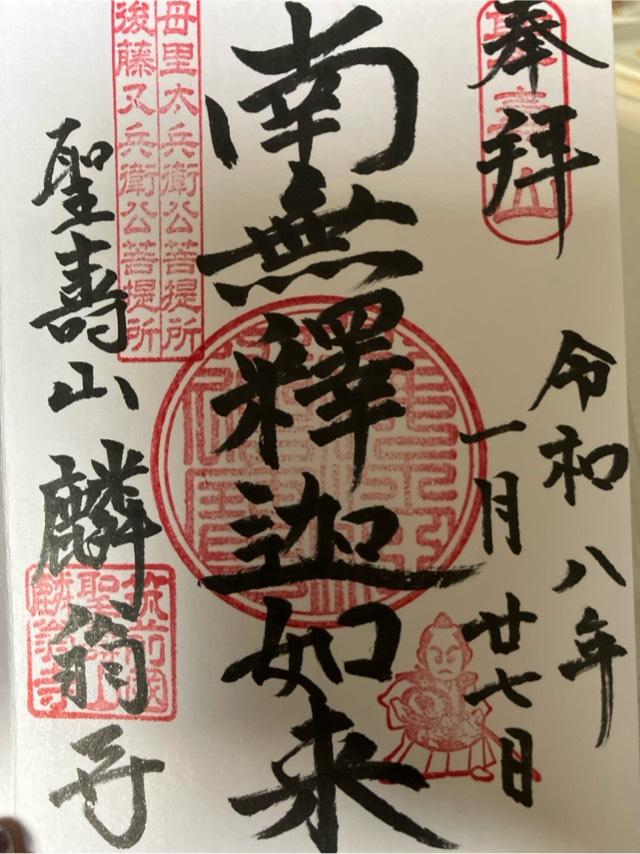 奉拝
令和八年
一月廿七日
南無釋迦如来
母里太兵衛公菩提所
後藤又兵衛公菩提所
聖壽山麟翁寺